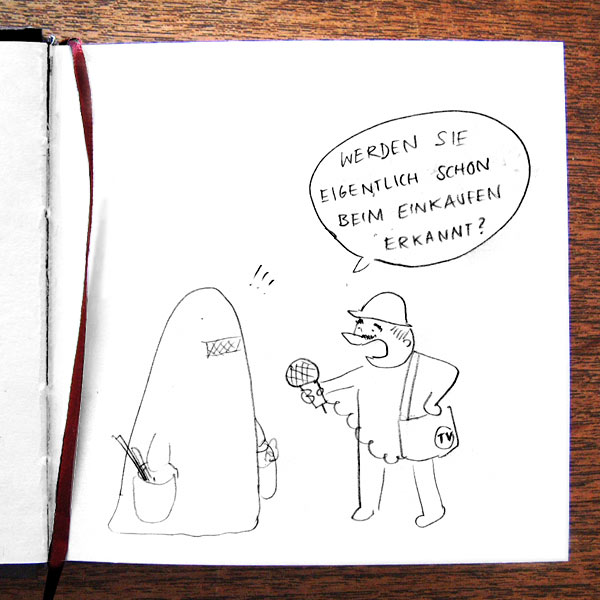 WERDEN SIE
EIGENTLICH SCHON
BEIM EINKAUFEN
ERKANNT?
TV